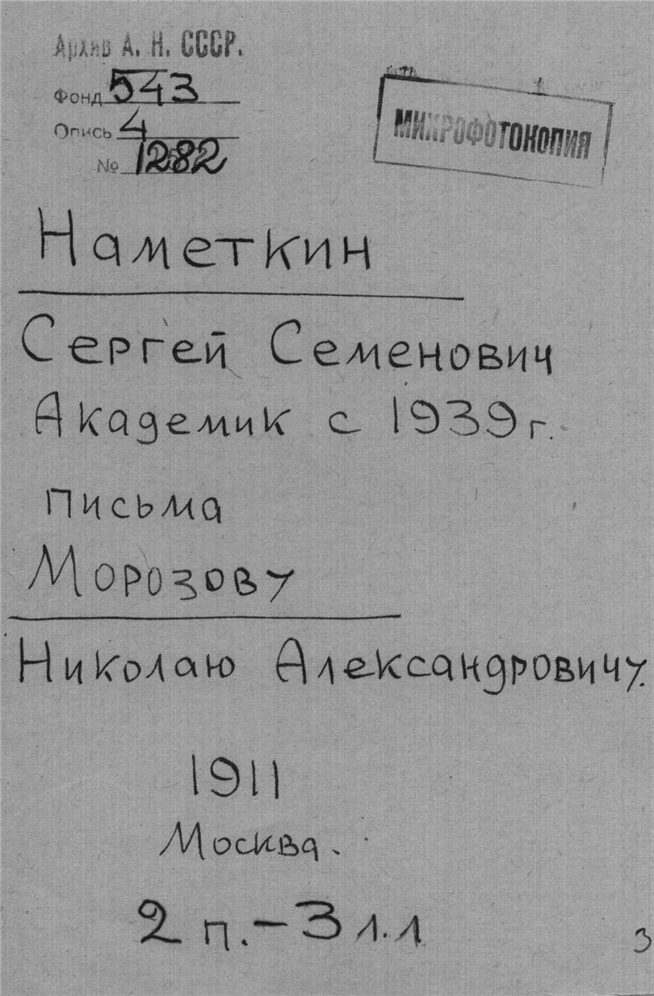 Архив А. Н. СССР.
Фонд 543
Опись 4
№ 1282
МИКРОФОТОКОПИЯ
Наметкин
Сергей Семенович
Академик с 1939 г.
письма
Морозову
Николаю Александровичу.
1911
Москва.
2 п. – 3 л.л
3